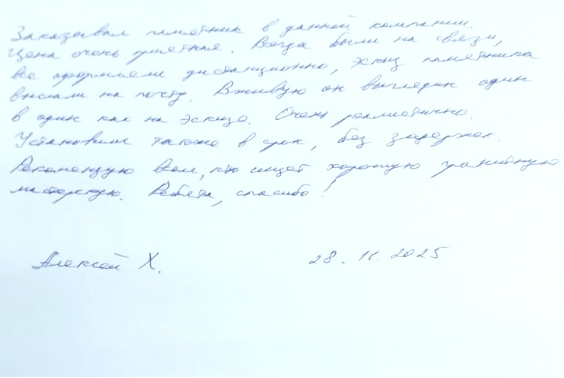 Заказывал памятник в данной компании.
Цена очень приятная. Всегда были на связи,
все оформляли дистанционно, эскиз памятника
выслали на почту. Вживую он выглядит один
в один как на эскизе. Очень реалистично.
Установили также в срок, без задержек.
Рекомендую всем, кто ищет хорошую гранитную
мастерскую. Ребята, спасибо!
Алексей Х. 28.11.2025